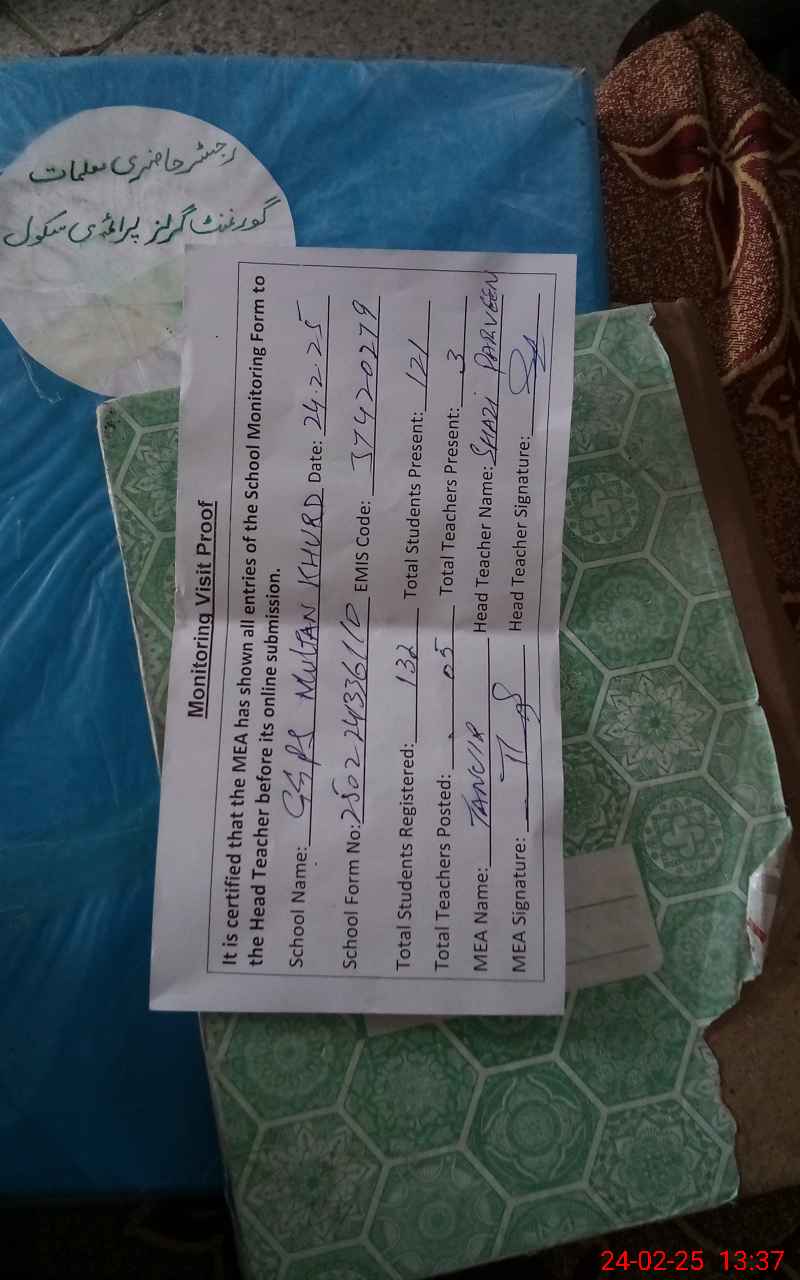 رجسٹر حاضری معلمات
گورنمنٹ گرلز پرائمری سکول
Monitoring Visit Proof
It is certified that the MEA has shown all entries of the School Monitoring Form to
the Head Teacher before its online submission.
School Name: GGPS MULTAN KHURD Date: 24.2.25
School Form No: 250224336110 EMIS Code: 37420279
Total Students Registered: 132 Total Students Present: 121
Total Teachers Posted: 05 Total Teachers Present: 3
MEA Name: Head Teacher Name: SHAZI PARVEEN
MEA Signature: Head Teacher Signature:
24-02-25 13:37